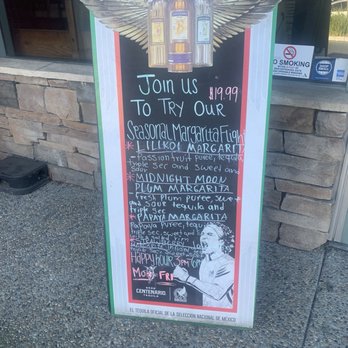 JOIN US
TO TRY OUR
$19.99
Seasonal Margarita Flight
* LILIKOI MARGARITA
- Passion fruit puree, tequila
triple sec and sweet and
sour
* MIDNIGHT MOON
PLUM MARGARITA
- Fresh Plum puree, sweet
and sour tequila and
triple sec
* PAPAYA MARGARITA
Papaya puree, tequila
triple sec, sweet and
HAPPY HOUR 3pm
MON FRI
GRAN
CENTENARIO
TEQUILA
EL TEQUILA OFICIAL DE LA SELECCIÓN NACIONAL DE MÉXICO
NO SMOKING